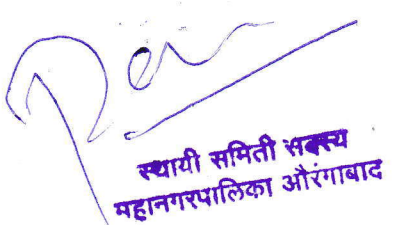 स्थायी समिती सदस्य
महानगरपालिका औरंगाबाद